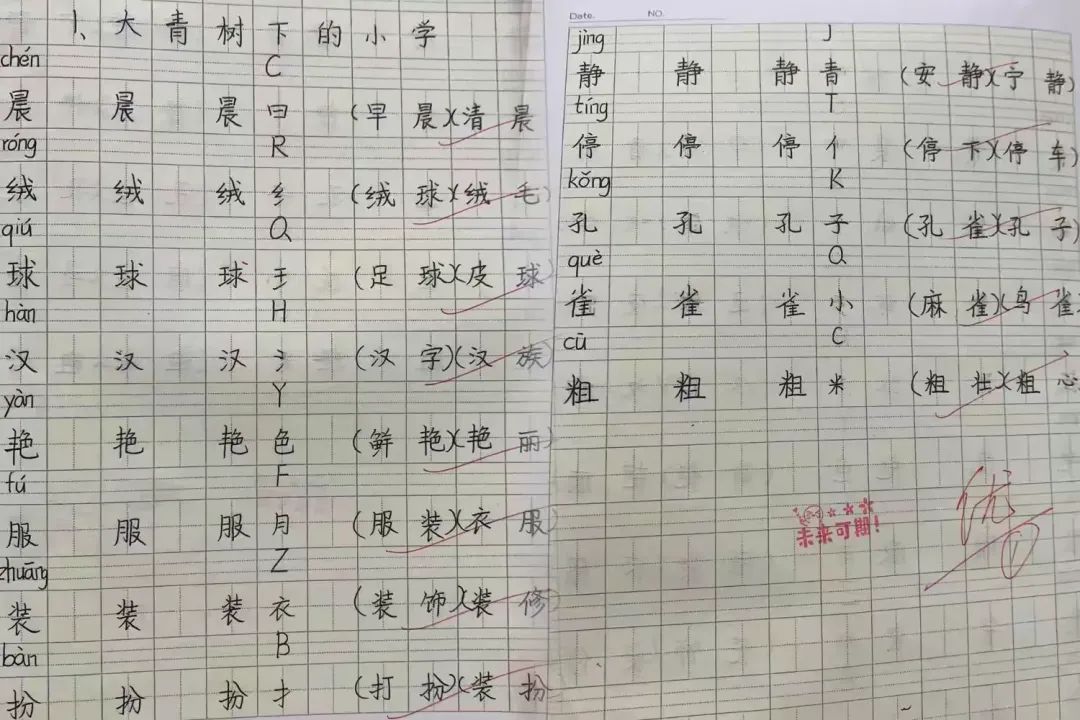 1、大青树下的小学
chén C
晨 晨 晨 曰 (早晨)(清晨
róng R
绒 绒 绒 纟 (绒球)(绒毛)
qiú Q
球 球 球 王 (足球)(皮球
hàn H
汉 汉 汉 氵 (汉字)(汉族
yàn Y
艳 艳 艳 色 (鲜艳)(艳丽
fú F
服 服 服 月 (服装)(衣服
zhuāng Z
装 装 装 衣 (装饰)(装修
bàn B
扮 扮 扮 扌 (打扮)(装扮
Date. NO.
jìng J
静 静 静 青 (安静)(宁静)
tíng T
停 停 停 亻 (停下)(停车)
kǒng K
孔 孔 孔 子 (孔雀)(孔子)
què Q
雀 雀 雀 小 (麻雀)(鸟雀
cū C
粗 粗 粗 米 (粗壮)(粗心
优
未来可期!